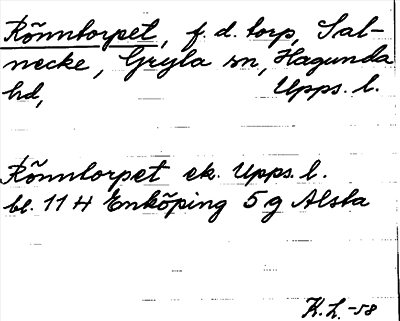 Rönntorpet, f. d. torp, Sal-
necke, Gryta sn, Hagunda
hd, Upps. l.
Rönntorpet ek. Upps. l.
bl. 11 H Enköping 5 g Alsta
K. L. -58